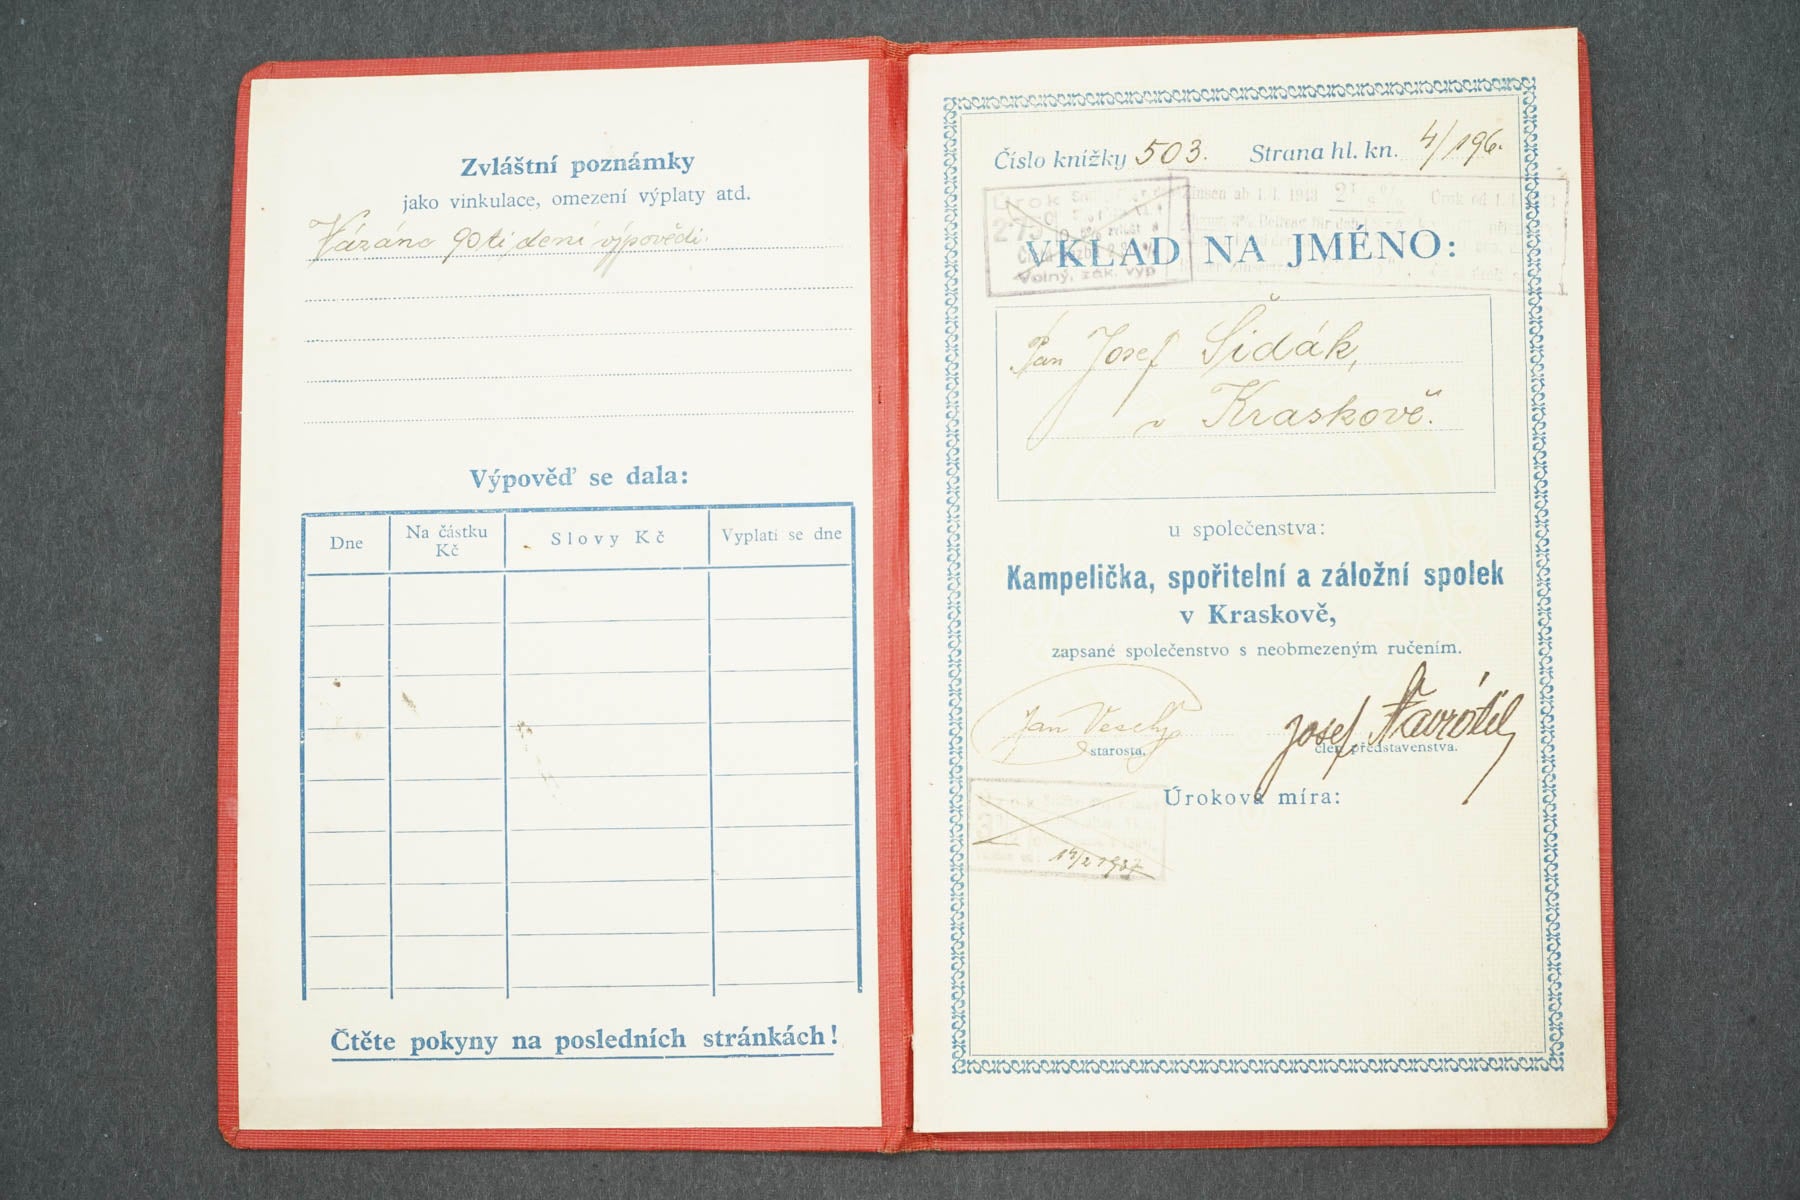 Zvláštní poznámky
jako vinkulace, omezení výplaty atd.
Vázáno 90ti denní výpovědí.
Výpověď se dala:
Dne
Na částku Kč
Slovy Kč
Vyplatí se dne
Čtěte pokyny na posledních stránkách!
Číslo knížky 503. Strana hl. kn. 4/196.
Úrok
2·75
Volný, zák. výp
Zinsen ab 1. I. 1943 2 1/2 % Úrok od 1. I. 1943
VKLAD NA JMÉNO:
Pan Josef Šidák,
v Kraskově.
u společenstva:
Kampelička, spořitelní a záložní spolek
v Kraskově,
zapsané společenstvo s neobmezeným ručením.
Jan Veselý
Josef Navrátil
starosta.
člen představenstva.
Úroková míra:
Úrok
14/2 1937